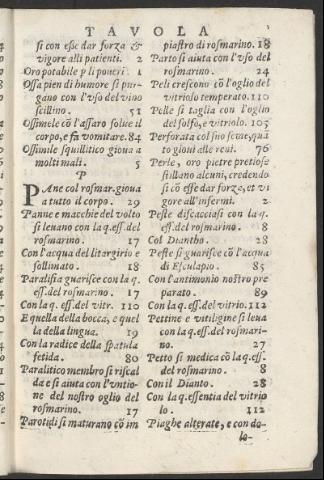 TAVOLA
si con esse dar forza &
vigore alli patienti. 2
Oro potabile p li poueri 1
Ossa pien di humore si pur-
gano con l'vso del vino
scillino. 51
Ossimele cõ l'assaro solue il
corpo, e fa vomitare. 84
Ossimile squillitico gioua a
molti mali. 5
P
PAne col rosmar. gioua
a tutto il corpo. 29
Panne e macchie del volto
si leuano con la q.ess. del
rosmarino. 17
Con l'acqua del litargirio e
sollimato. 18
Paralisia guarisce con la q.
ess. del rosmarino. 17
Con la q. ess. del vitr. 110
E quella della bocca, e quel
la della lingua. 19
Con la radice della spatula
fetida. 80
Paralitico membro si riscal
da e si aiuta con l'vntio-
ne del nostro oglio del
rosmarino. 17
Parotidi si maturano cõ im
piastro di rosmarino. 18
Parto si aiuta con l'vso del
rosmarino. 24
Peli crescono cõ l'oglio del
vitriolo temperato. 110
Pelle si taglia con l'oglio
del solfo, e vitriolo. 105
Perforata col suo seme, qua
to gioui alle reni. 76
Perle, oro pietre pretiose
stillano alcuni, credendo
si cõ esse dar forza, et vi
gore all'infermi. 2
Peste discacciasi con la q.
ess. del rosmarino. 8
Col Diantho. 28
Peste si guarisce cõ l'acqua
di Esculapio. 85
Con l'antimonio nostro pre
parato. 89
Con la q. ess. del vitrio. 112
Pettine e vitiligine si leua
con la q. ess. del rosmari-
no. 27
Petto si medica cõ la q. ess.
del rosmarino. 8
Con il Dianto. 28
Con la q. essentia del vitrio
lo. 112
Piaghe alterate, e con do-
lo-